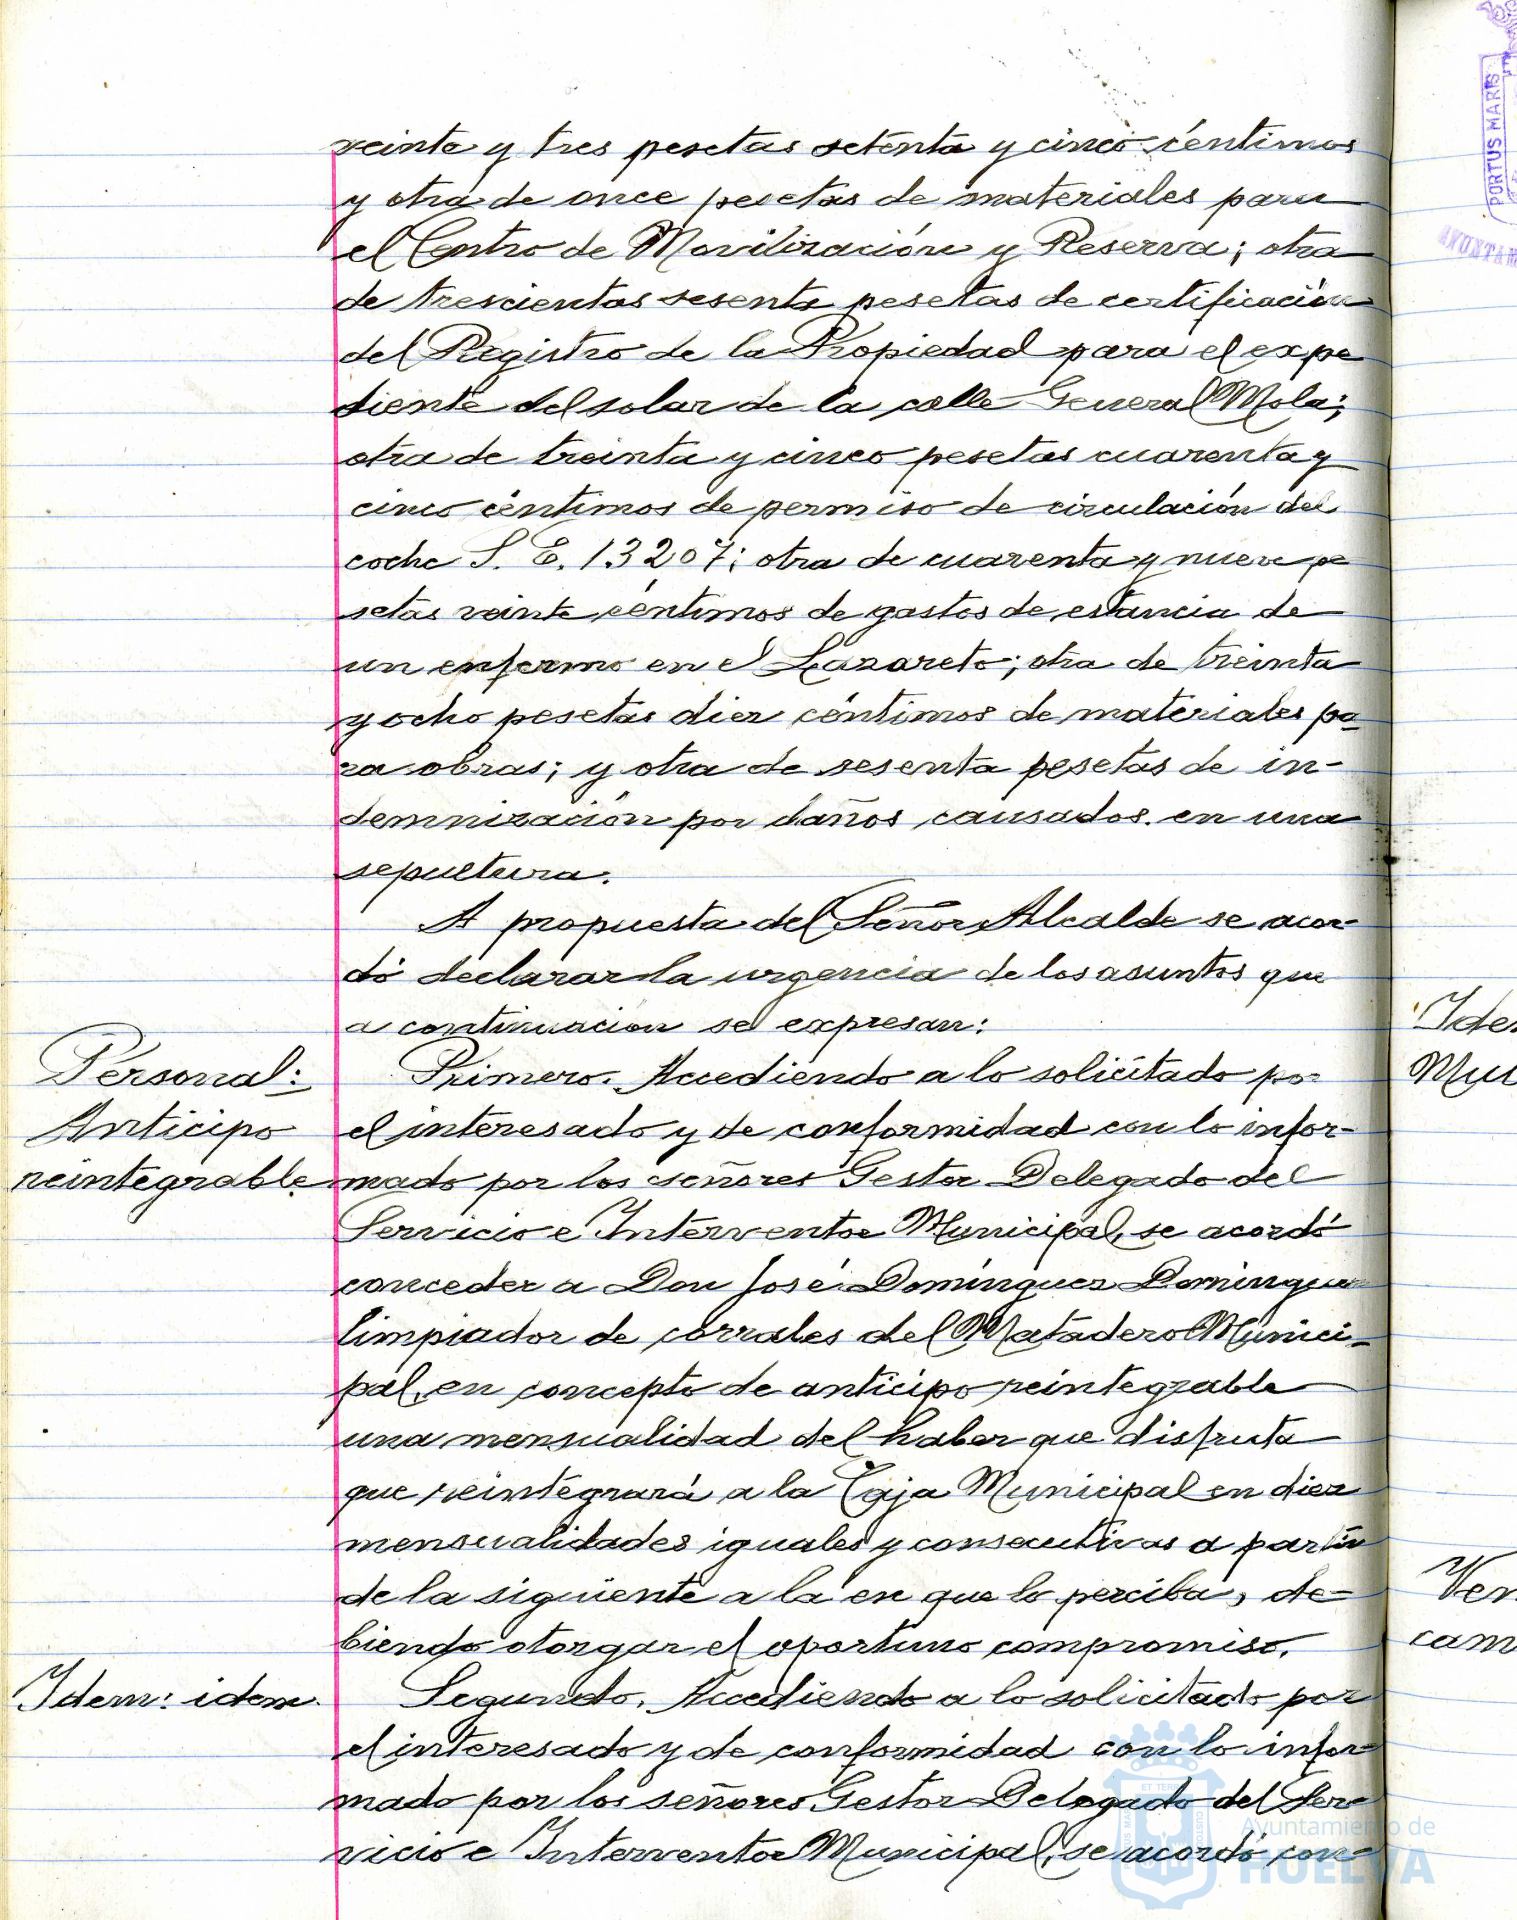 veinte y tres pesetas setenta y cinco céntimos
y otra de once pesetas de materiales para
el Centro de Movilización y Reserva; otra
de trescientas sesenta pesetas de certificación
del Registro de la Propiedad para el expe
diente del solar de la calle General Mola;
otra de treinta y cinco pesetas cuarenta y
cinco céntimos de permiso de circulación del
coche S. E. 13207; otra de cuarenta y nueve pe
setas veinte céntimos de gastos de estancia de
un enfermo en el Lazareto; otra de treinta
y ocho pesetas diez céntimos de materiales pa
ra obras; y otra de sesenta pesetas de in-
demnización por daños causados en una
sepultura.
A propuesta del Señor Alcalde se acor-
dó declarar la urgencia de los asuntos que
a continuación se expresan:
Personal:
Anticipo
reintegrable
Primero. Accediendo a lo solicitado por
el interesado y de conformidad con lo infor-
mado por los señores Gestor Delegado del
Servicio e Interventor Municipal, se acordó
conceder a Don José Domínguez Domínguez
limpiador de corrales del Matadero Munici-
pal, en concepto de anticipo reintegrable
una mensualidad del haber que disfruta
que reintegrará a la Caja Municipal en diez
mensualidades iguales y consecutivas a partir
de la siguiente a la en que lo perciba, de-
biendo otorgar el oportuno compromiso.
Idem: idem.
Segundo. Accediendo a lo solicitado por
el interesado y de conformidad con lo infor-
mado por los señores Gestor Delegado del Ser-
vicio e Interventor Municipal, se acordó con-
PORTUS MARIS
Ide
Mu
Ven
cam
Ayuntamiento de
HUELVA